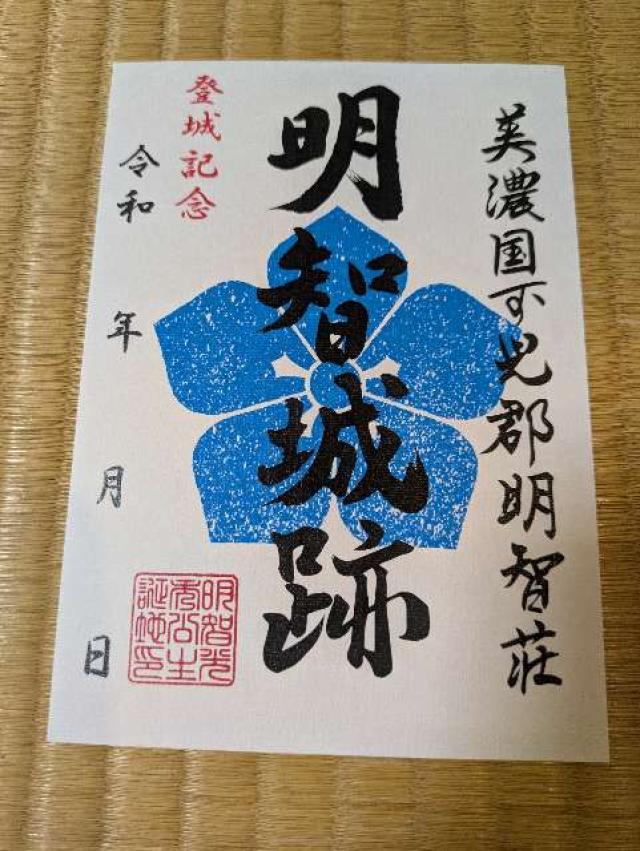 美濃国可児郡明智荘
明智城跡
登城記念
令和 年 月 日
明智光
秀公生
誕地印